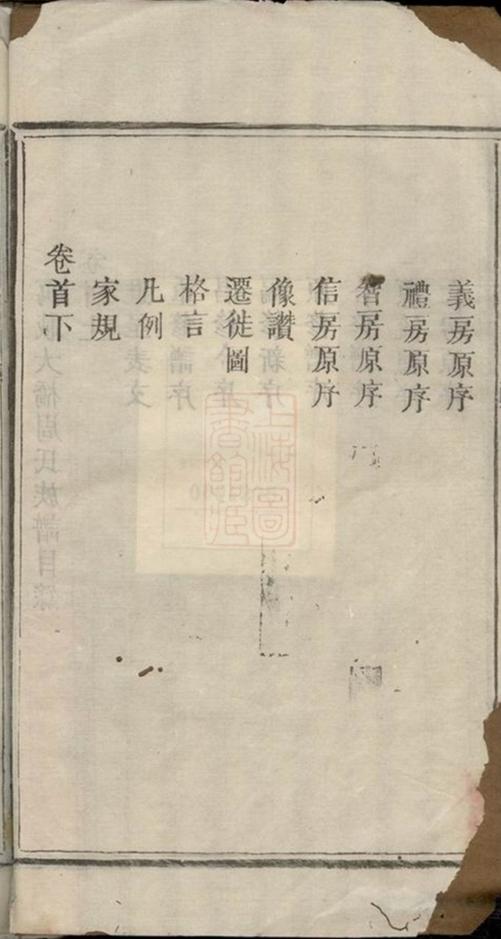 義房原序
禮房原序
智房原序
信房原序
像讚
遷徙圖
格言
凡例
家規
卷首下
上海圖書館藏